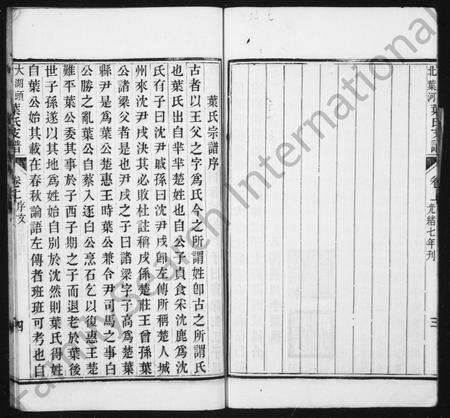 北葉河葉氏支譜
卷
光緒七年刊
三
葉氏宗譜序
古者以王父之字爲氏今之所謂姓卽古之所謂氏
也葉氏出自羋羋楚姓也自公子貞食采沈鹿爲沈
氏有子曰沈尹戌孫曰沈尹戌卽左傳所稱楚人城
州來沈尹戌決其必敗杜註稱戌係楚莊王曾孫葉
公諸梁父者是也尹戌之子曰諸梁字子高爲楚葉
縣尹是爲葉公楚惠王時葉公兼令尹司馬之事白
公勝之亂葉公自蔡入逐白公烹石乞以復惠王楚
難平葉公委其事於子西子期之子而退老於葉後
世子孫遂以其地爲姓始自別於沈然則葉氏得姓
自葉公始其載在春秋論語左傳者班班可考也自
大湖頭葉氏支譜
卷十二
序文
四
FamilySearch International